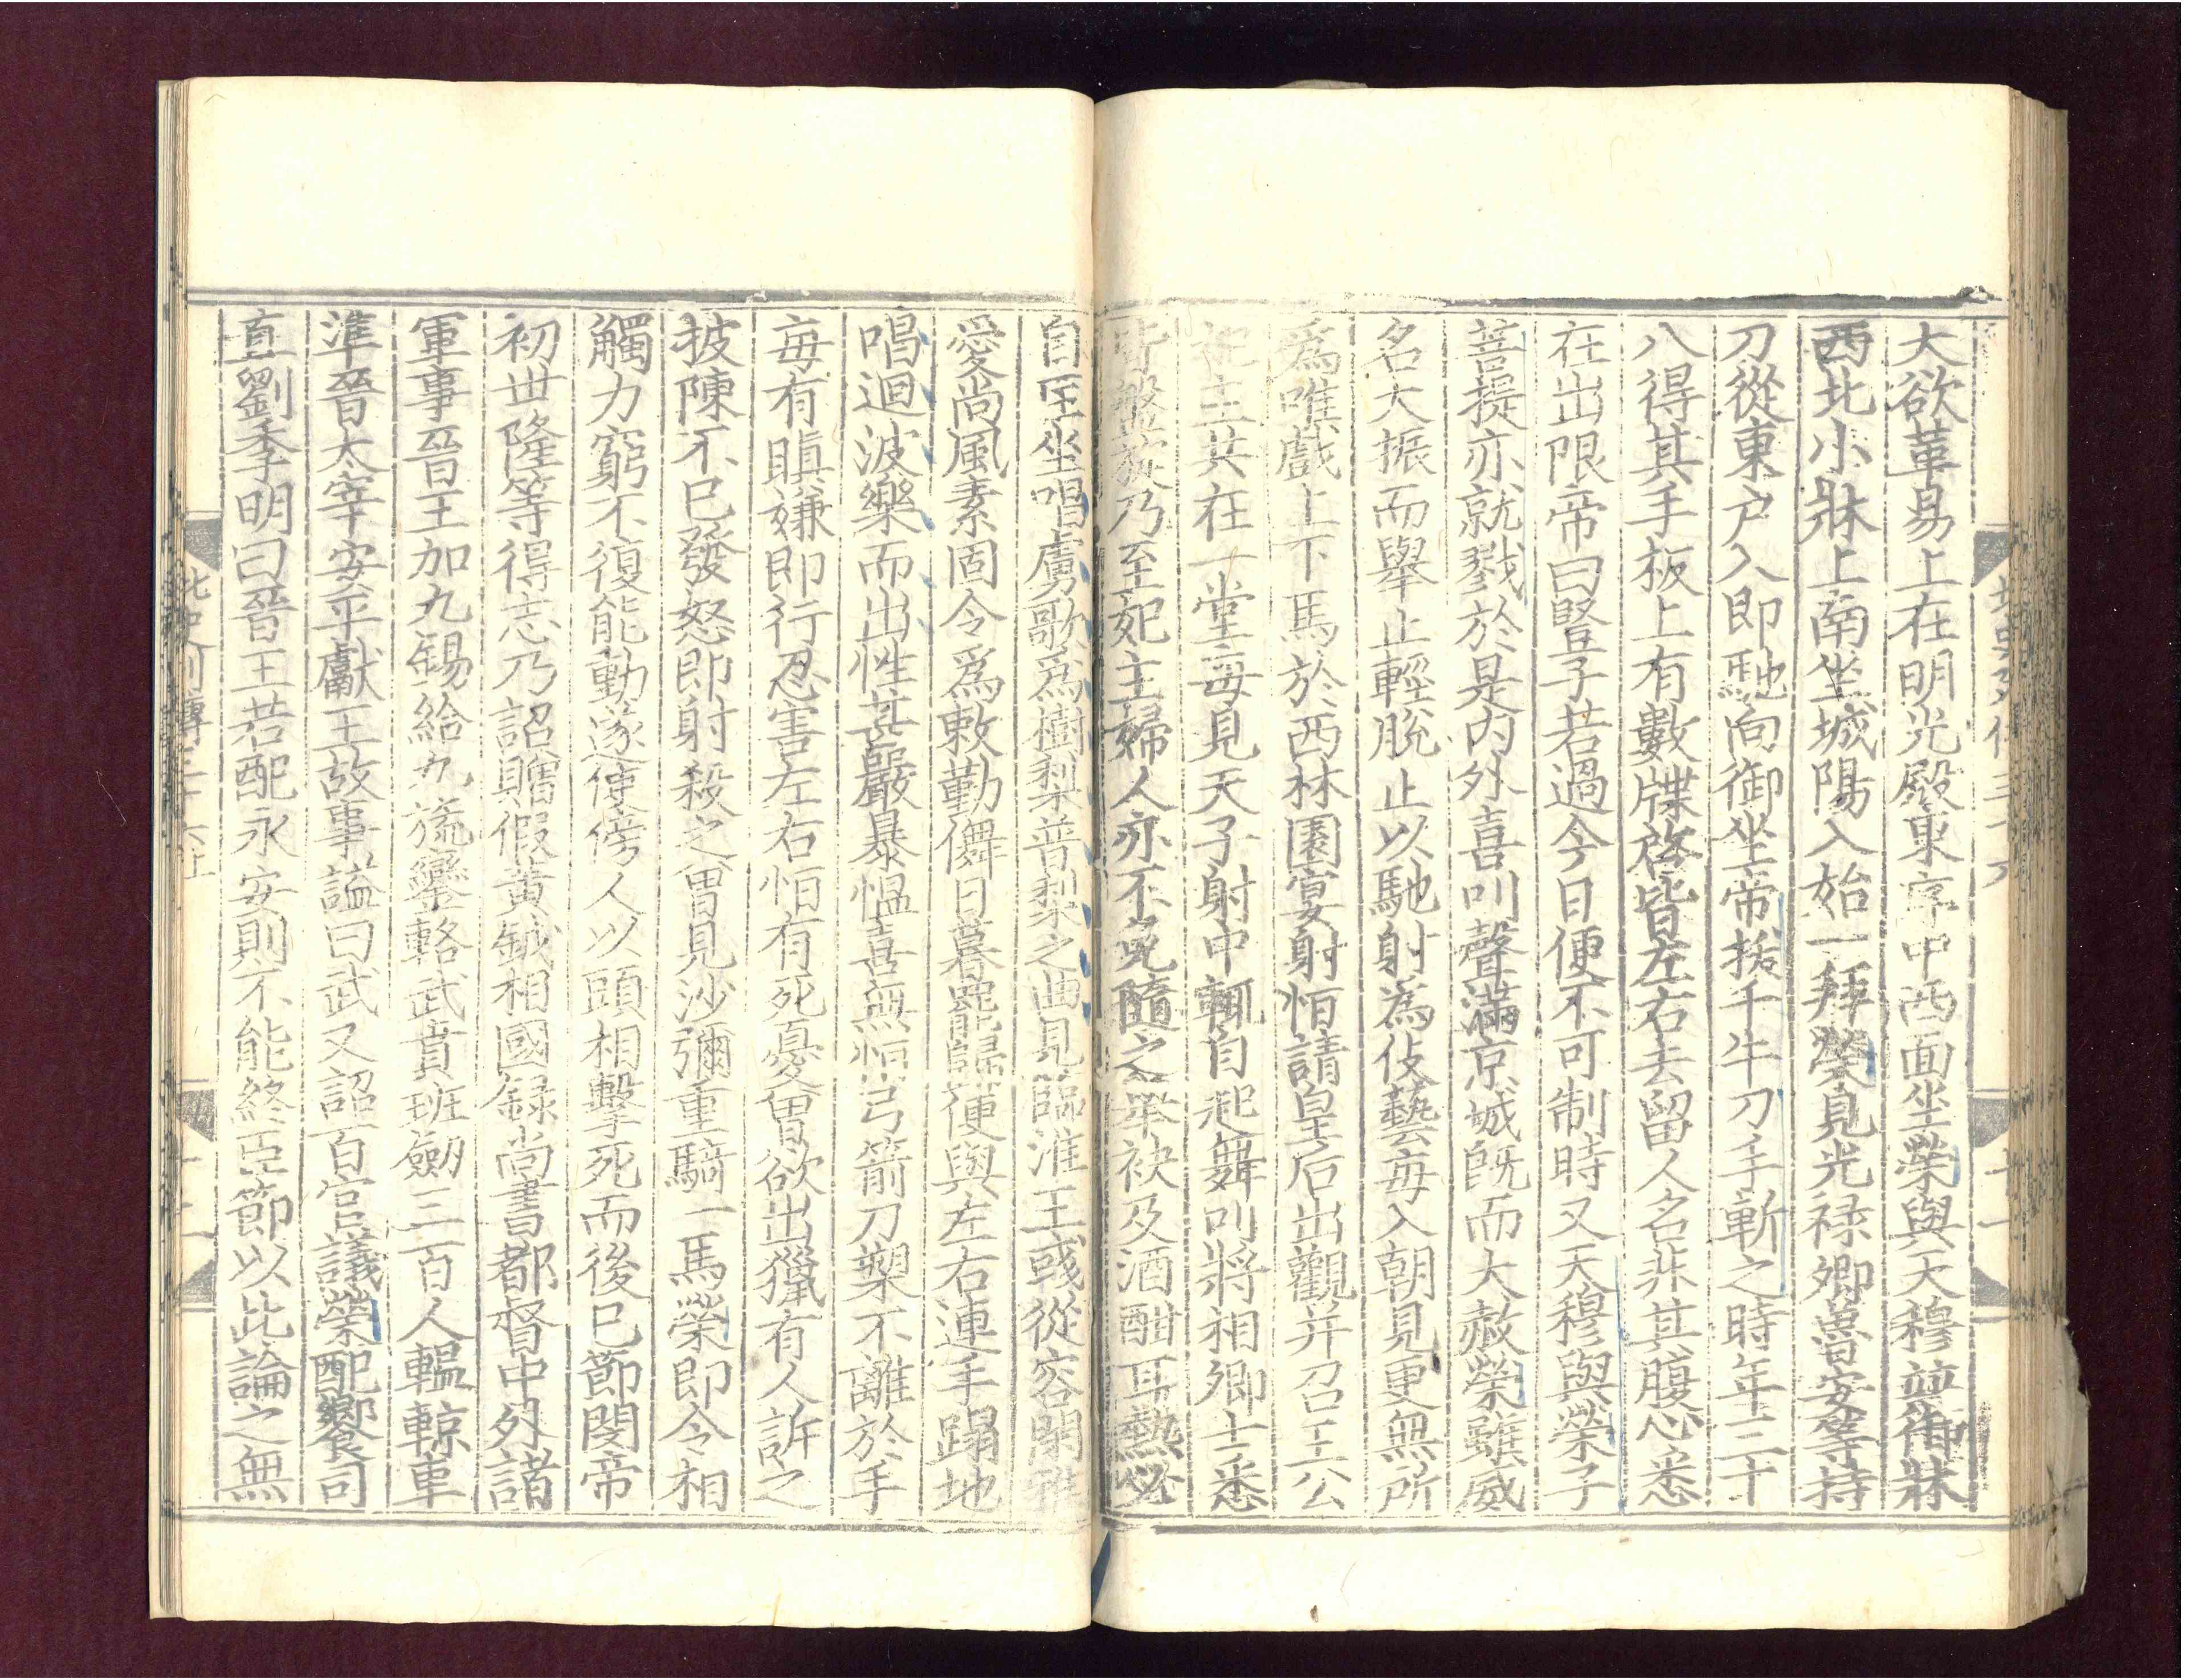 大欲革易上在明光殿東序中西面坐榮與天穆並御牀
西北小牀上南坐城陽入始一拜榮見光祿卿魯安等持
刀從東户入即馳向御坐帝拔千牛刀手斬之時年三十
八得其手板上有數牒啓皆左右去留人名非其腹心悉
在出限帝曰豎子若過今日便不可制時又天穆與榮子
菩提亦就戮於是内外喜叫聲滿京城旣而大赦榮雖威
名大振而舉止輕脫止以馳射爲伎藝每入朝見更無所
爲唯戲上下馬於西林園宴射恒請皇后出觀并召王公
妃主共在一堂每見天子射中輒自起舞叫將相卿士悉
皆盤旋乃至妃主婦人亦不免隨之舉袂及酒酣耳熱必
北史列傳三十六
十一
自匡坐唱虜歌爲樹梨普梨之曲見臨淮王彧從容閑雅
愛尚風素固令爲敕勤儛日暮罷歸便與左右連手蹋地
唱迴波樂而出性甚嚴暴愠喜無恒弓箭刀槊不離於手
每有瞋嫌即行忍害左右恒有死憂曾欲出獵有人訴之
披陳不已發怒即射殺之曾見沙彌重騎一馬榮即令相
觸力窮不復能動遂使傍人以頭相擊死而後已節閔帝
初世隆等得志乃詔贈假黄鉞相國録尚書都督中外諸
軍事晉王加九錫給九旒鑾輅武賁班劒三百人轀輬車
準晉太宰安平獻王故事謚曰武又詔百官議榮配饗司
直劉季明曰晉王若配永安則不能終臣節以此論之無
北史列傳三十六
十一